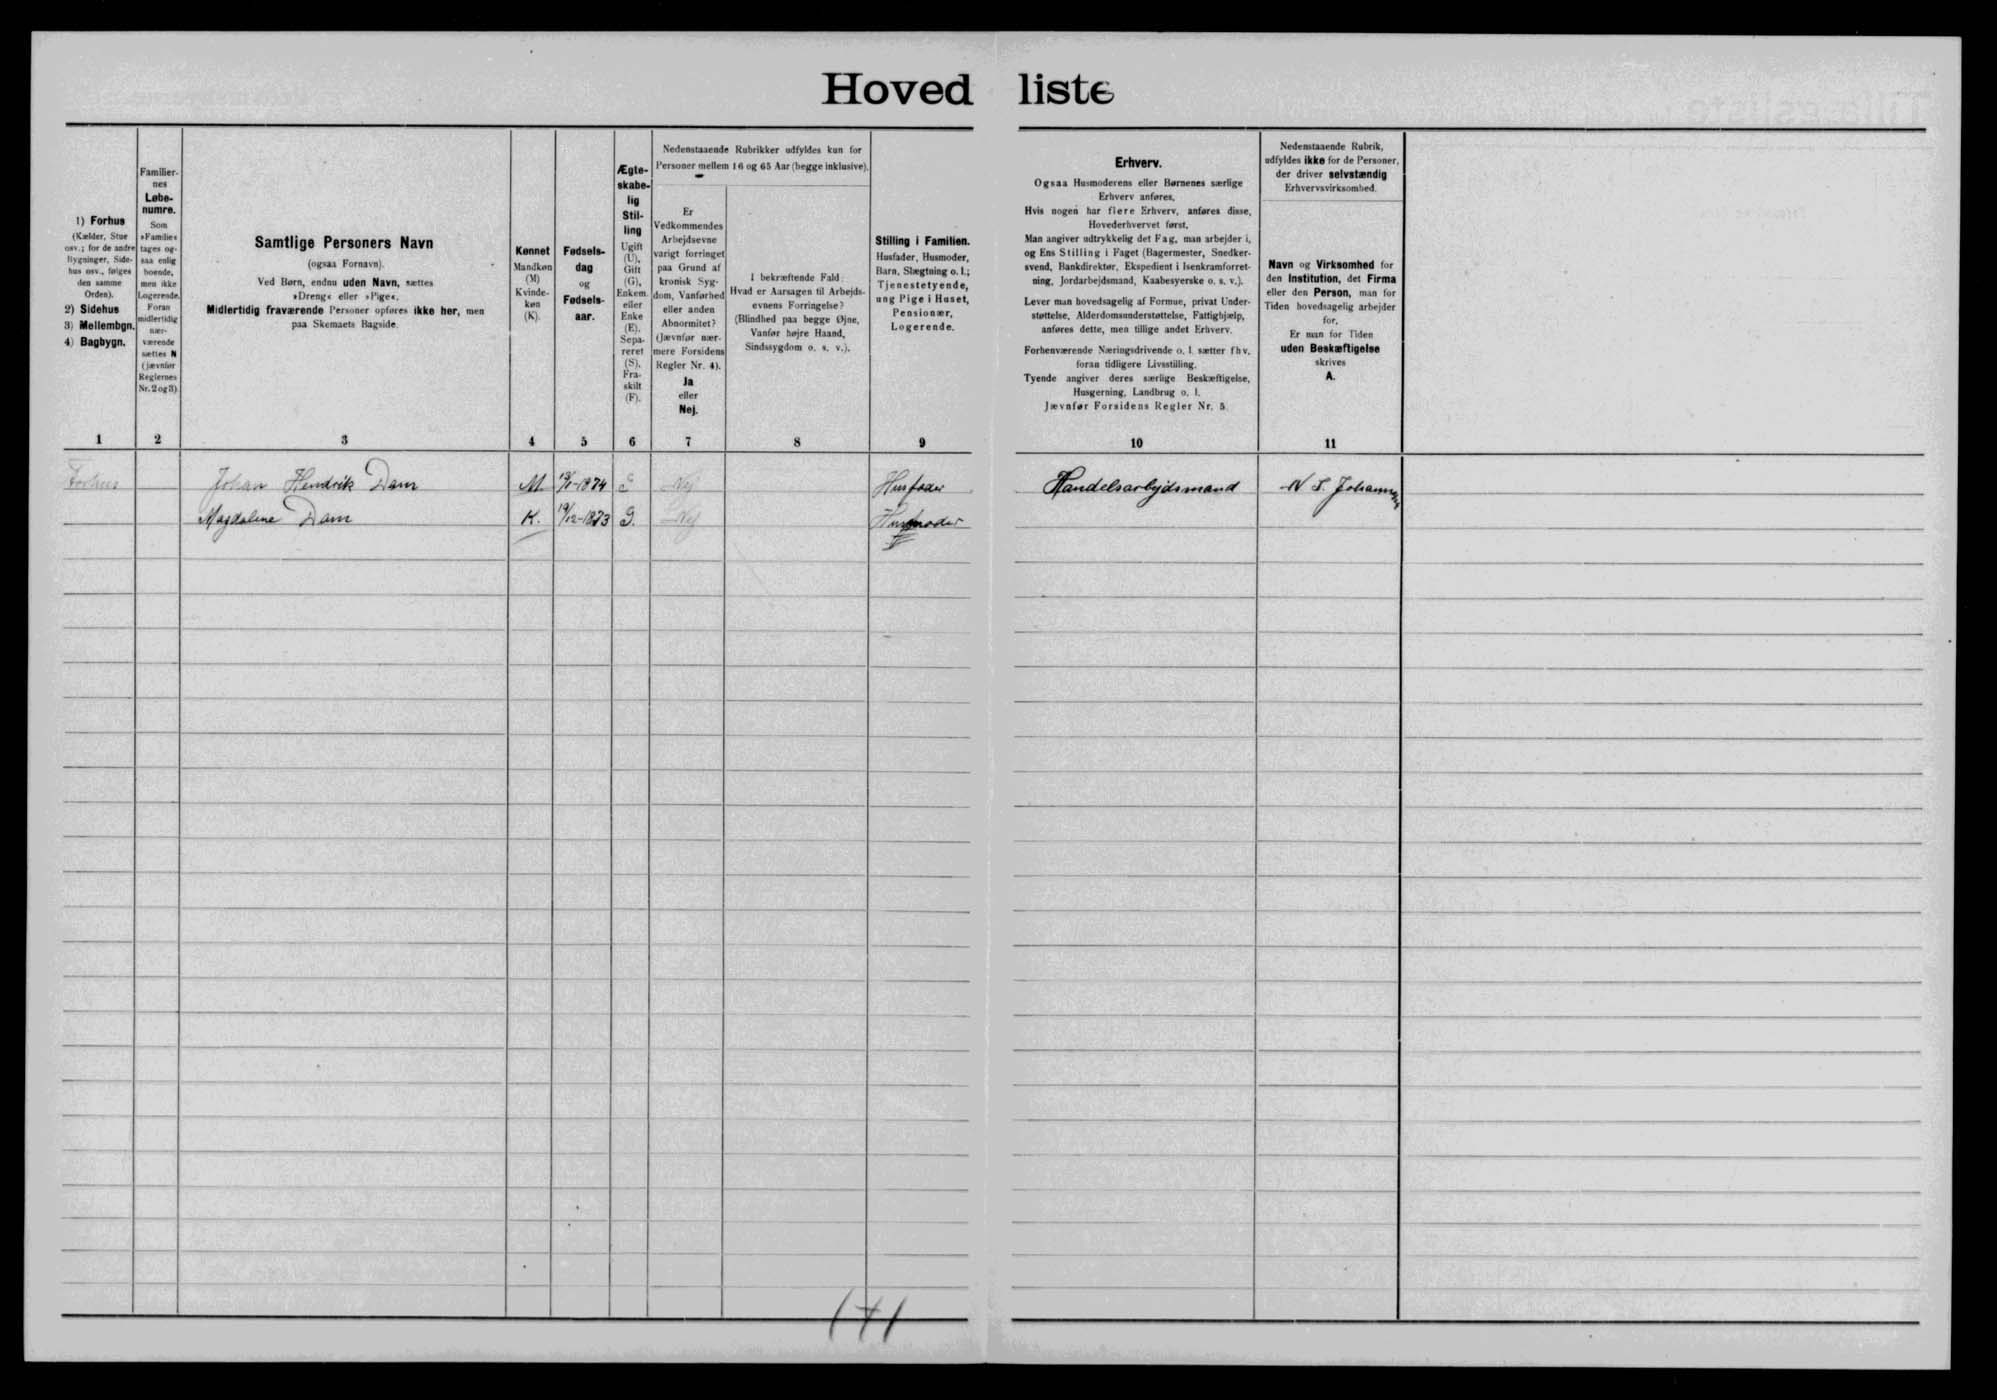 Hovedliste
1) Forhus
(Kælder, Stue
osv.; for de andre
Bygninger, Side-
hus osv., følges
den samme
Orden).
2) Sidehus
3) Mellembgn.
4) Bagbygn.
Familier-
nes
Løbe-
numre.
Som
»Familie«
tages og-
saa enlig
boende,
men ikke
Logerende.
Foran
midlertidig
nær-
værende
sættes N
(jævnfør
Reglernes
Nr. 2 og 3)
Samtlige Personers Navn
(ogsaa Fornavn).
Ved Børn, endnu uden Navn, sættes
»Dreng« eller »Pige«.
Midlertidig fraværende Personer opføres ikke her, men
paa Skemaets Bagside.
Kønnet
Mandkøn
(M)
Kvinde-
køn
(K).
Fødsels-
dag
og
Fødsels-
aar.
Ægte-
skabe-
lig
Stil-
ling
Ugift
(U),
Gift
(G),
Enkem.
eller
Enke
(E),
Sepa-
reret
(S),
Fra-
skilt
(F).
Nedenstaaende Rubrikker udfyldes kun for
Personer mellem 16 og 65 Aar (begge inklusive).
Er
Vedkommendes
Arbejdsevne
varigt forringet
paa Grund af
kronisk Syg-
dom, Vanførhed
eller anden
Abnormitet?
(Jævnfør nær-
mere Forsidens
Regler Nr. 4).
Ja
eller
Nej.
I bekræftende Fald:
Hvad er Aarsagen til Arbejds-
evnens Forringelse?
(Blindhed paa begge Øjne,
Vanfør højre Haand,
Sindssygdom o. s. v.).
Stilling i Familien.
Husfader, Husmoder,
Barn, Slægtning o. l.;
Tjenestetyende,
ung Pige i Huset,
Pensionær,
Logerende.
Erhverv.
Ogsaa Husmoderens eller Børnenes særlige
Erhverv anføres.
Hvis nogen har flere Erhverv, anføres disse,
Hovederhvervet først.
Man angiver udtrykkelig det Fag, man arbejder i,
og Ens Stilling i Faget (Bagermester, Snedker-
svend, Bankdirektør, Ekspedient i Isenkramforret-
ning, Jordarbejdsmand, Kaabesyerske o. s. v.).
Lever man hovedsagelig af Formue, privat Under-
støttelse, Alderdomsunderstøttelse, Fattighjælp,
anføres dette, men tillige andet Erhverv.
Forhenværende Næringsdrivende o. l. sætter fhv.
foran tidligere Livsstilling.
Tyende angiver deres særlige Beskæftigelse,
Husgerning, Landbrug o. l.
Jævnfør Forsidens Regler Nr. 5.
Nedenstaaende Rubrik,
udfyldes ikke for de Personer,
der driver selvstændig
Erhvervsvirksomhed.
Navn og Virksomhed for
den Institution, det Firma
eller den Person, man for
Tiden hovedsagelig arbejder
for.
Er man for Tiden
uden Beskæftigelse
skrives
A.
1 2 3 4 5 6 7 8 9 10 11
Forhus Johan Hendrik Dam M 1874 G Nej Husfader Handelsarbejdsmand N S. Johannsen
Magdalene Dam K. 19/12-1873 G. Nej Husmoder
171